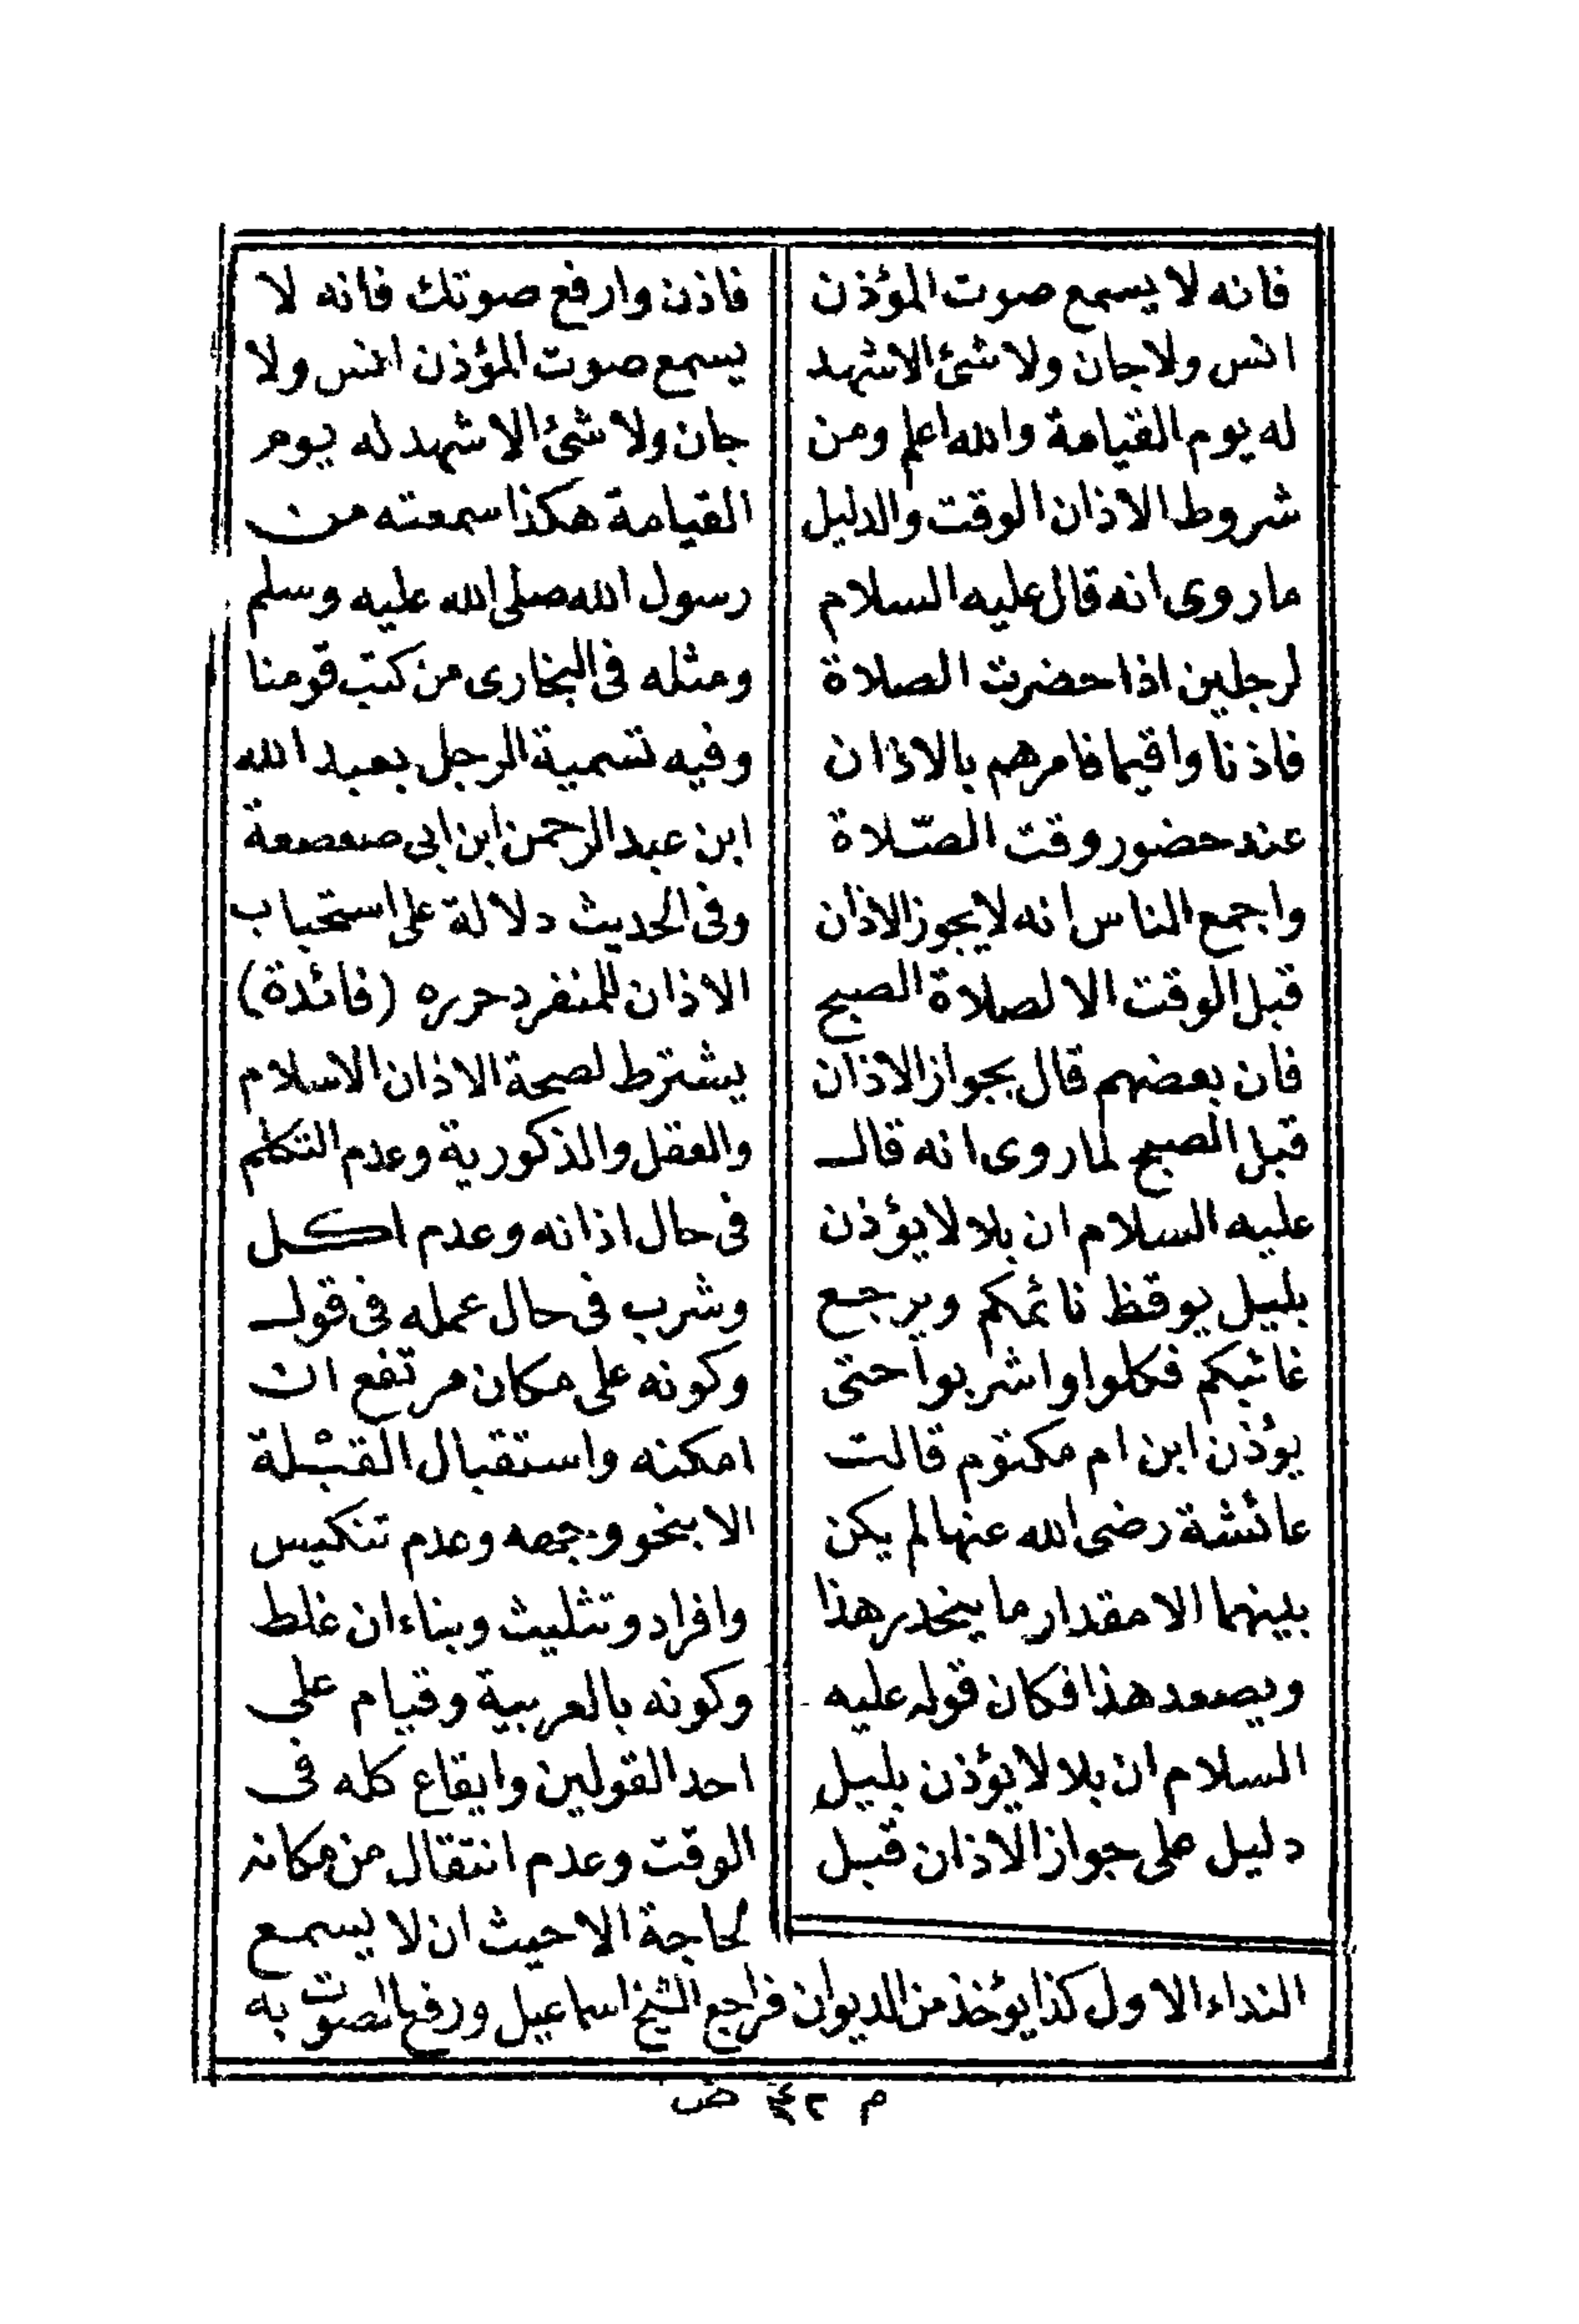 فانه لا يسمع صوت المؤذن
انس ولا جان ولا شئ الا شهد
له يوم القيامة والله اعلم ومن
شروط الاذان الوقت والدليل
ما روى انه قال عليه السلام
لرجلين اذا حضرت الصلاة
فاذنا واقيما فامرهم بالاذان
عند حضور وقت الصّلاة
واجمع الناس انه لا يجوز الاذان
قبل الوقت الا لصلاة الصبح
فان بعضهم قال بجواز الاذان
قبل الصبح لما روى انه قال
عليه السلام ان بلالا يؤذن
بليل يوقظ نائمكم ويرجع
غائبكم فكلوا واشربوا حتى
يؤذن ابن ام مكتوم قالت
عائشة رضى الله عنها لم يكن
بينهما الا مقدار ما ينحدر هذا
ويصعد هذا فكان قوله عليه
السلام ان بلالا يؤذن بليل
دليل على جواز الاذان قبل
فاذن وارفع صوتك فانه لا
يسمع صوت المؤذن انس ولا
جان ولا شئ الا شهد له يوم
القيامة هكذا سمعته من
رسول الله صلى الله عليه وسلم
ومثله فى البخارى من كتب قومنا
وفيه تسمية الرجل بعبد الله
ابن عبد الرحمن ابن ابى صعصعة
وفى الحديث دلالة على استحباب
الاذان للمنفرد حرره (فائدة)
يشترط لصحة الاذان الاسلام
والعقل والذكورية وعدم التكلم
فى حال اذانه وعدم اكل
وشرب فى حال عمله فى قول
وكونه على مكان مرتفع ان
امكنه واستقبال القبْلة
الا بنحو وجهه وعدم تنكيس
وافراد وتثليث وبناء ان غلط
وكونه بالعربية وقيام على
احد القولين وايقاع كله فى
الوقت وعدم انتقال من مكانه
لحاجة الا حيث ان لا يسمع
النداء الاول كذا يؤخذ من الديوان فراجع الشيخ اسماعيل ورفع الصوت به
م ٤٢ ض